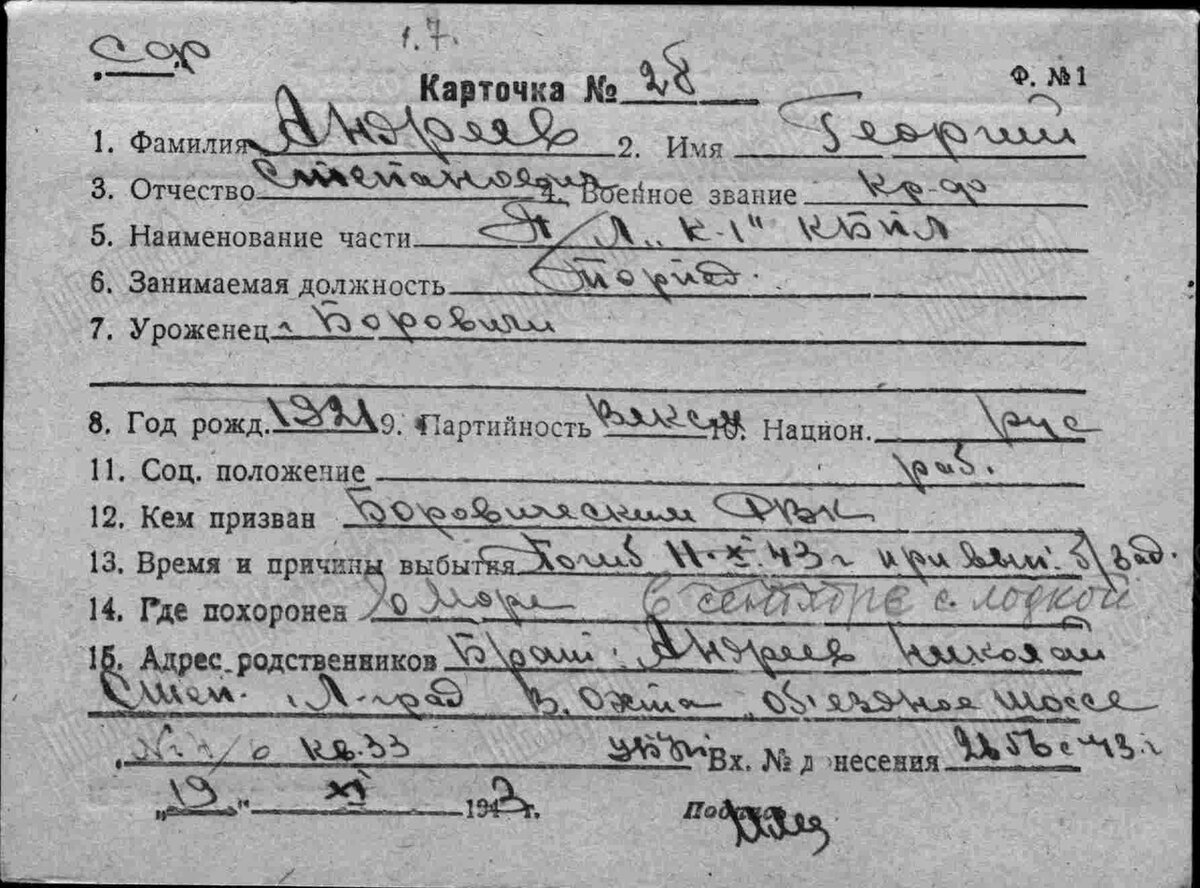 1.7.
Карточка № 28 Ф. №1
1. Фамилия Андреев 2. Имя Георгий
3. Отчество Степанович 4. Военное звание кр-фл
5. Наименование части П/Л „К-1" КБПЛ
6. Занимаемая должность Торпед.
7. Уроженец г. Боровичи
8. Год рожд. 1921 9. Партийность ВЛКСМ 10. Национ. рус
11. Соц. положение раб.
12. Кем призван Боровическим РВК
13. Время и причины выбытия Погиб 11.X.43 г при вып. б/зад.
14. Где похоронен В море в сентябре с лодкой
15. Адрес родственников Брат: Андреев Николай
Степ. Л-град В. Охта, Объездное шоссе
кв. 33 Вх. № донесения 2856с 43 г
„19" XI 1943 г. Подпись